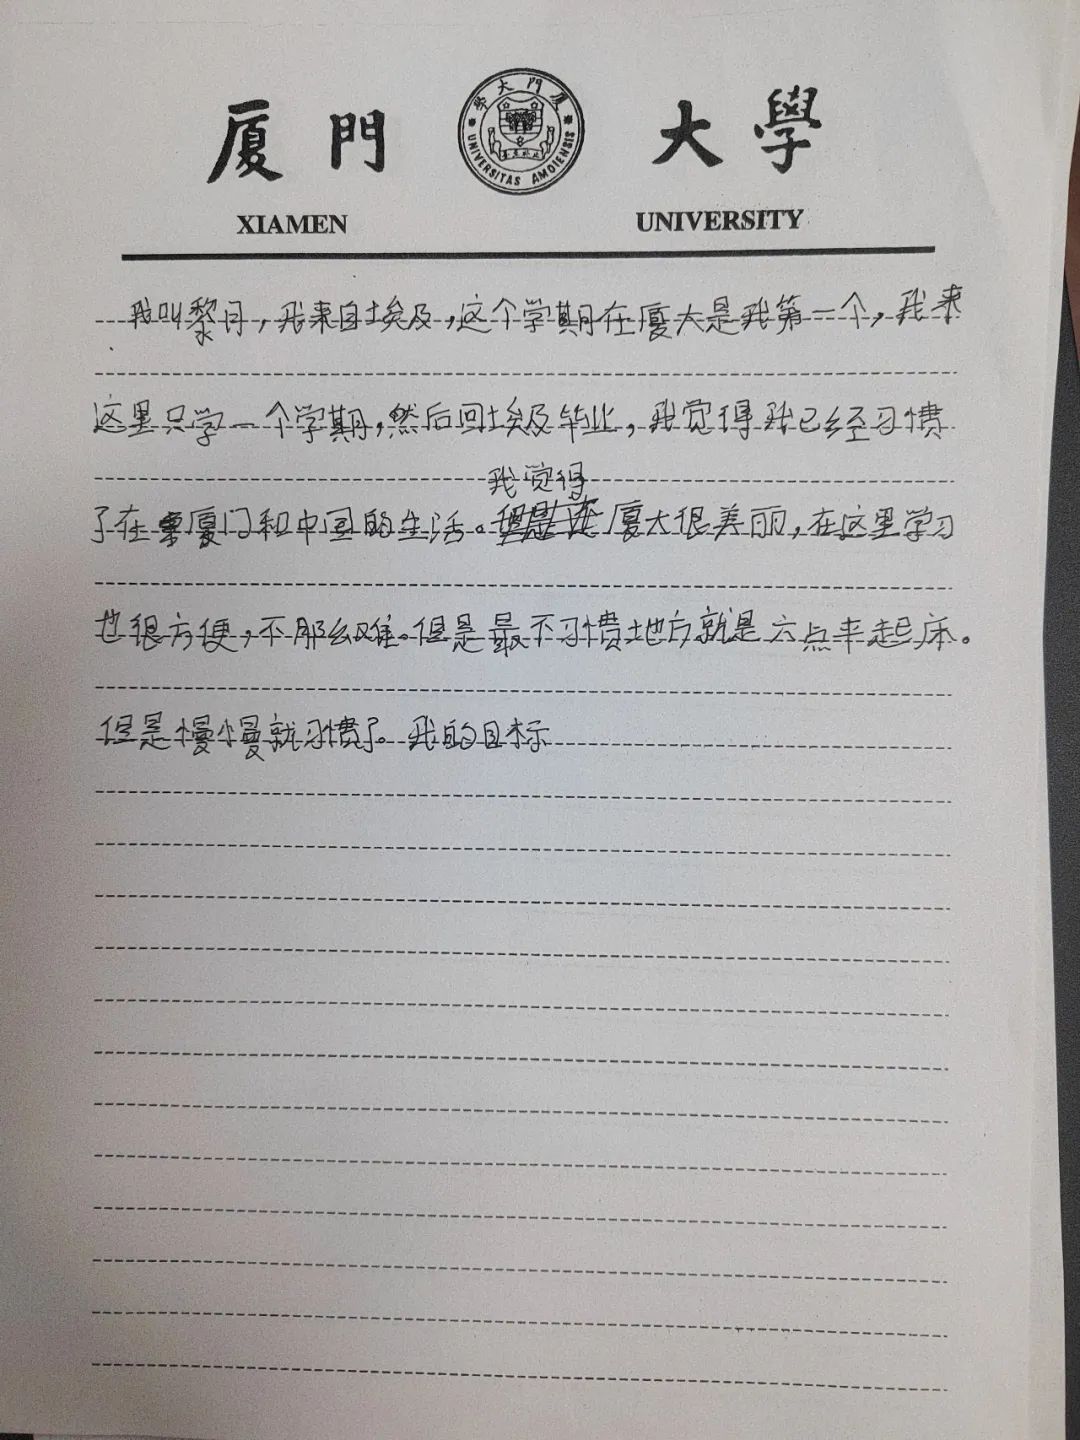 厦門大學
XIAMEN UNIVERSITY
廈門大學
UNIVERSITAS AMOIENSIS
我叫黎月，我来自埃及，这个学期在厦大是我第一个，我来
这里只学一个学期，然后回埃及毕业，我觉得我已经习惯
我觉得
了在厦门和中国的生活。厦大很美丽，在这里学习
也很方便，不那么难。但是最不习惯地方就是六点半起床。
但是慢慢就习惯了。我的目标